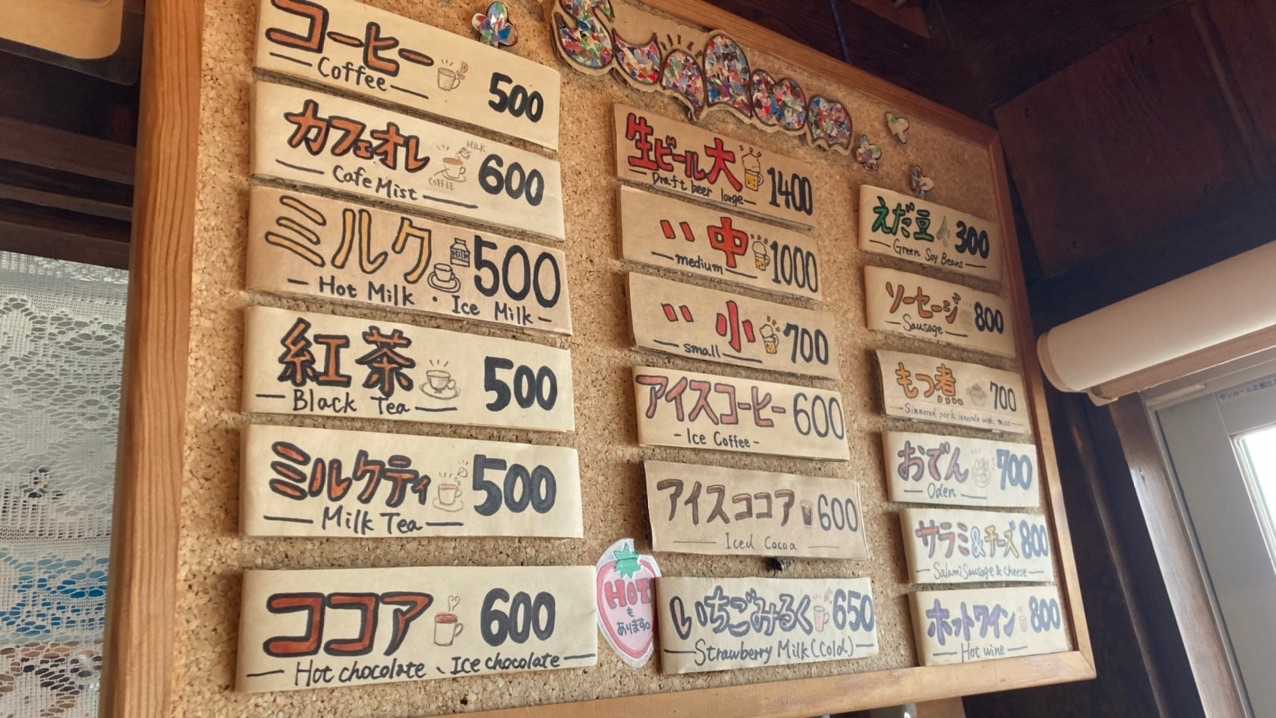 コーヒー 500
Coffee
カフェオレ 600
MILK
COFFEE
Cafe Mist
ミルク 500
Hot Milk・Ice Milk
紅茶 500
Black Tea
ミルクティ 500
Milk Tea
ココア 600
Hot chocolate、Ice chocolate
生ビール大 1400
Draft beer large
〃 中 1000
medium
〃 小 700
small
アイスコーヒー 600
Ice Coffee
アイスココア 600
Iced Cocoa
HOT
も
あります。
いちごみるく 650
Strawberry Milk (Cold)
えだ豆 300
Green Soy Beans
ソーセージ 800
Sausage
もつ煮 700
Simmered pork
おでん 700
Oden
サラミ&チーズ 800
Salami Sausage & cheese
ホットワイン 800
Hot wine